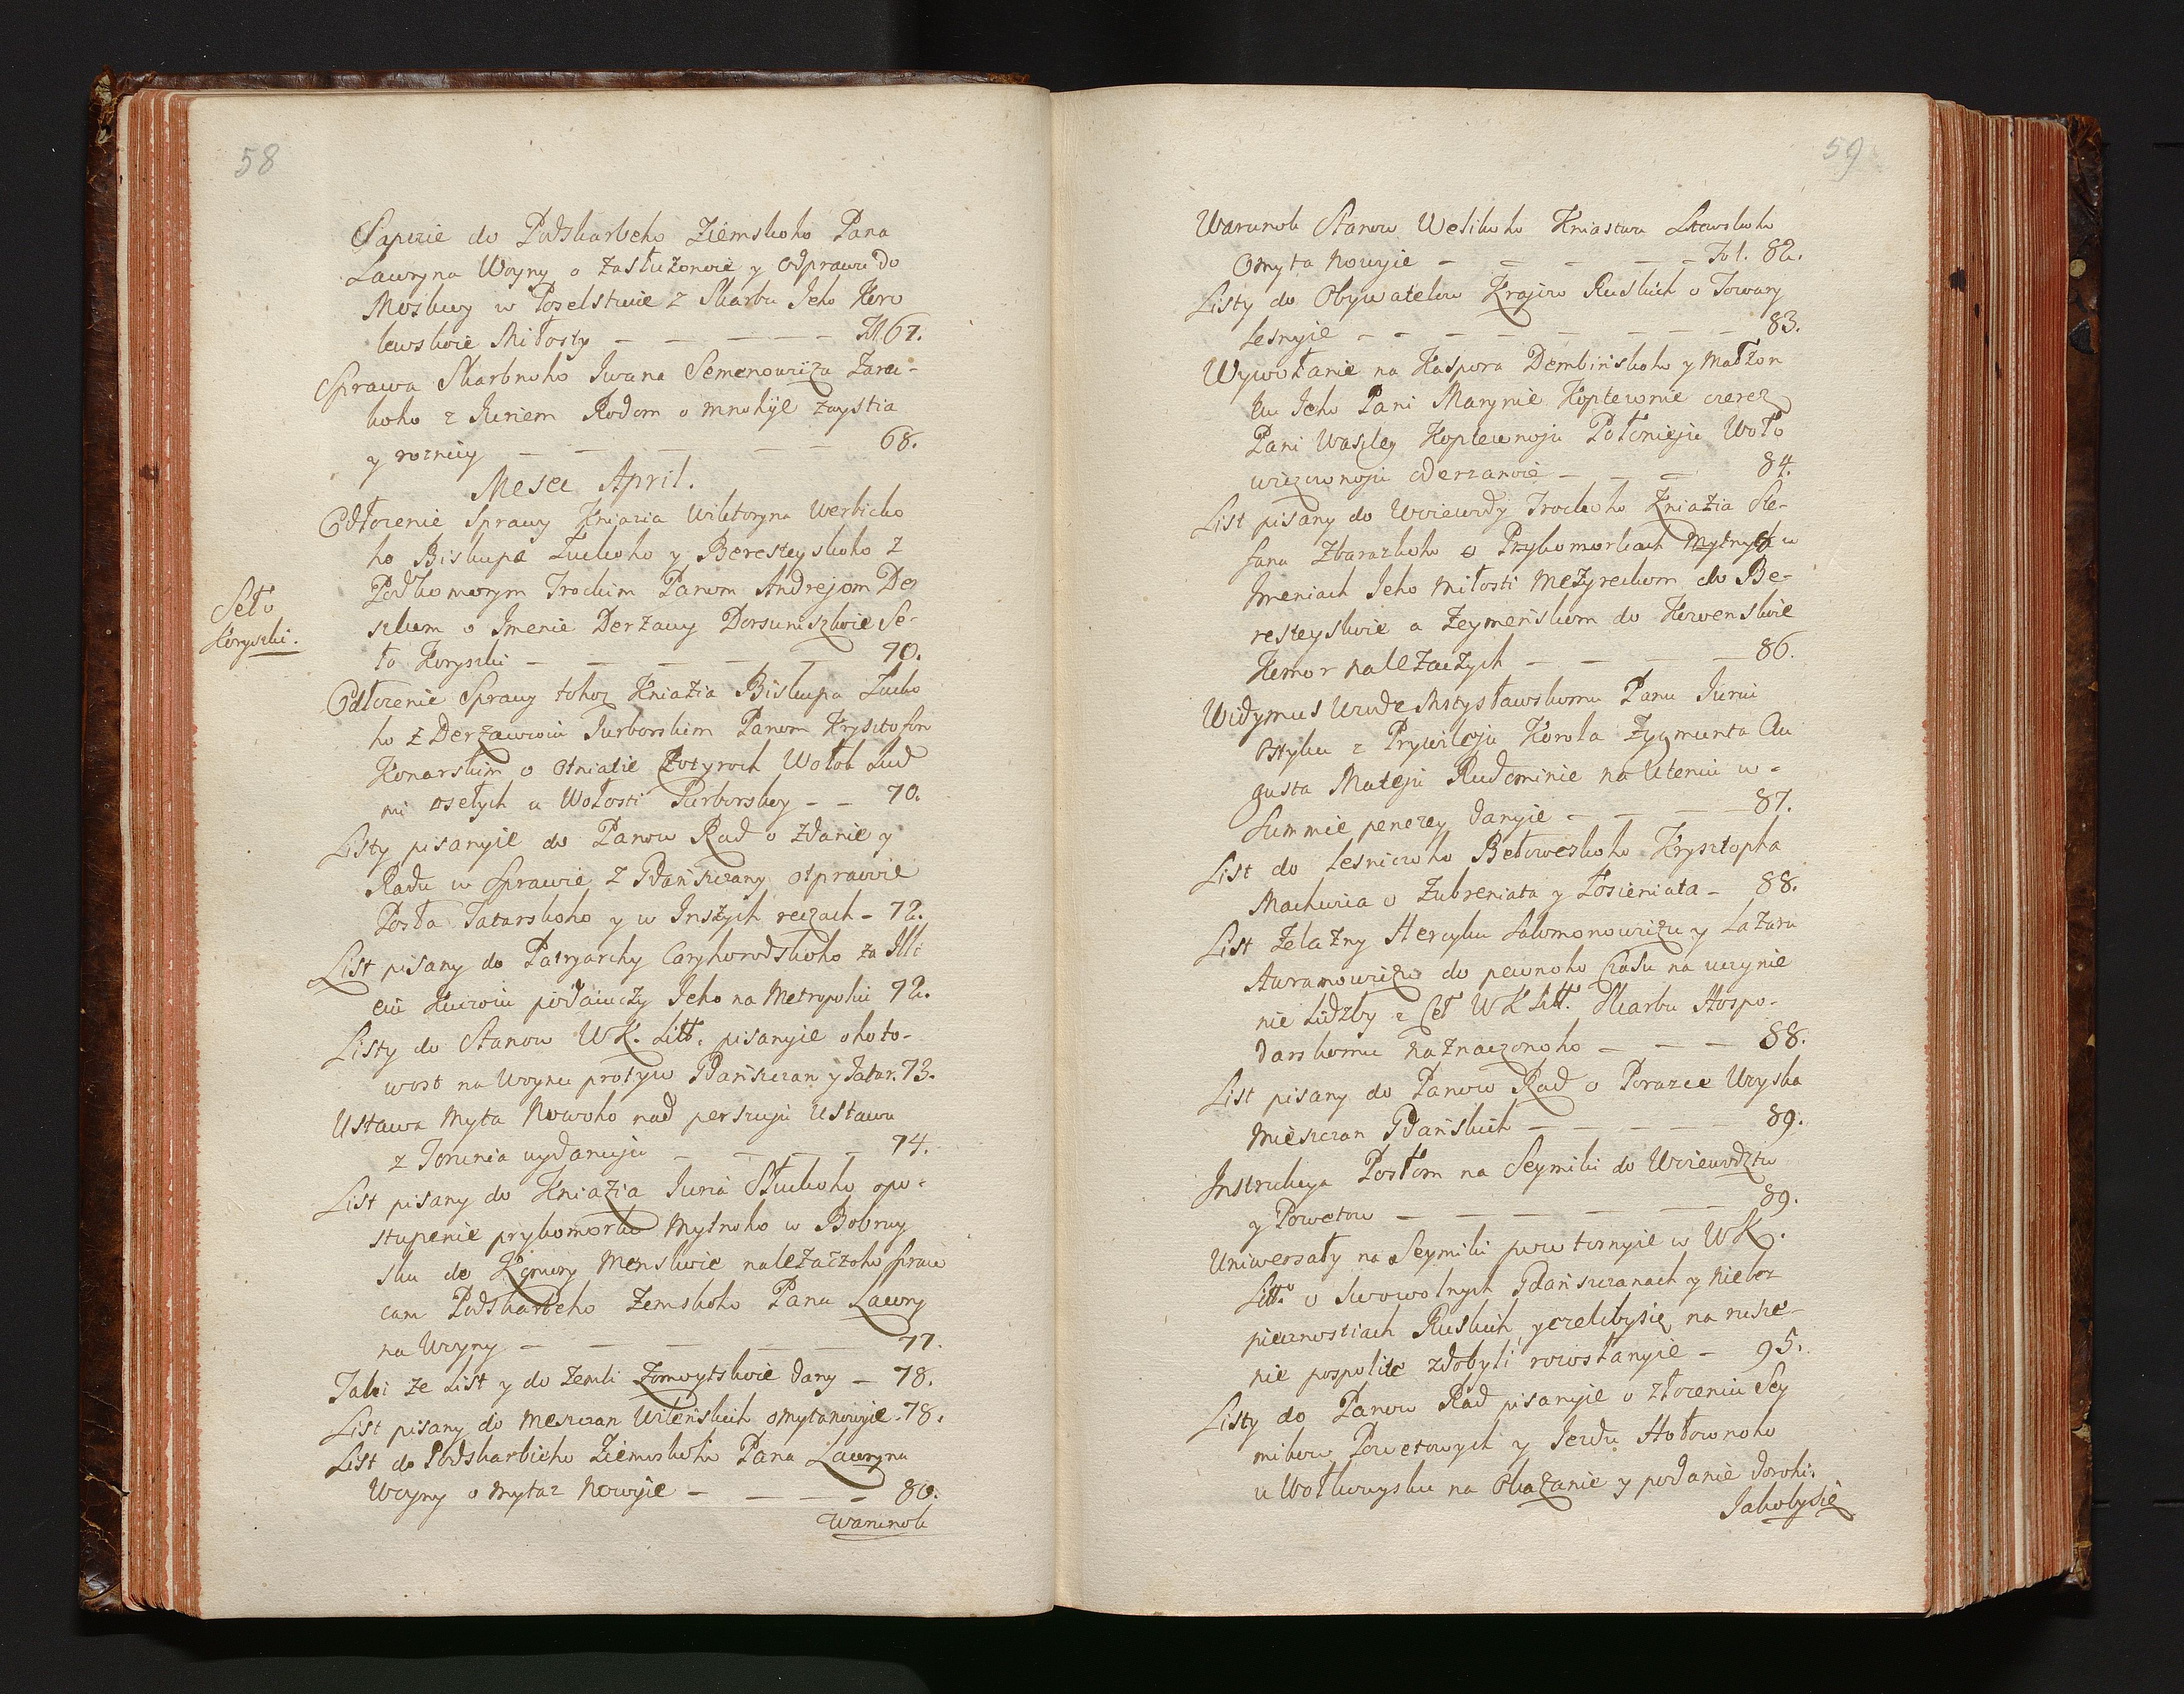 58
Sapezie do Podskarbeho Ziemskoho Pana
Lawryna Woyny o zasłużenoie y odprawu do
Moskwy w Poselstwie z Skarbu Jeho Koro
lewskoie Miłosty — — — — — 67.
Sprawa Skarbnoho Iwana Semenowicza Zarec-
koho z Juriem Rodom o mnohije zaystia
y roznicy — — — — — 68.
Mesec April.
Odłożenie Sprawy Kniazia Wiktoryna Werbicko
ho Biskupa Łuckoho y Beresteyskoho z
Podkomorym Trockim Panom Andrejom Dez
szkom o Jmenie Derżawy Dorsuniszkoie Se-
ło Koryszki — — — — — 70.
Seło
Koryszki.
Odłożenie Sprawy tohoż Kniazia Biskupa Łucko
ho z Derżawcoiu Jurborskim Panom Krysztofom
Konarskim o Otniatie Czotyroch Wołok Lud
mi osełych u Wołosti Jurborskoy - - 70.
Listy pisanyie do Panow Rad o zdanie y
Radu w Sprawie z Gdańszczany otprawie
Posła Tatarskoho y w Inszych reczach - 72.
List pisany do Patryarchy Caryhorodskoho za Illi
eiu Kuczoiu pidaiuczy Jeho na Metropoliu 72.
Listy do Stanow W K. Litt. pisanyie o hoto-
wost na Woynu protyw Gdańszczan y Tatar. 73.
Ustawa Myta Nowoho nad perszuju Ustawu
z Torunia wydanuju — — — — 74.
List pisany do Kniazia Juria Słuckoho o po-
stupenie prykomorka Mytnoho w Bobruy
sku do Komory Menskoie należaczoho sprau
cam Podskarbeho Zemskoho Pana Lawry
na Woyny — — — — — 77.
Taki że List y do Zemli Żomoytskoie dany — 78.
List pisany do Meszczan Wilenskich o myta nowyie - 78.
List do Podskarbieho Ziemskoho Pana Lawryna
Woyny o Myta z Nowyie — — — — 80.
Warunok
59
Warunok Stanow Welikoho Kniastwa Litowskoho
O myta nowyie — — — — — Fol. 82.
Listy do Obywatelow Krajow Ruskich o Towary
Lesnyie — — — — — — — 83.
Wywołanie na Kaspora Dembińskoho y Małżon
ku Jeho Pani Marynie Koptewnie czerez
Pani Wasiley Koptewnoju Połonieju Woło
wiczownoju oderżanoie — — — 84.
List pisany do Woiewody Trockoho Kniazia Ste-
fana Zbarazkoho o Przykomorkach Mytnych w
Jmeniach Jeho Miłosti Mezyreckom do Be-
resteyskoie a Zeymeńskom do Kowenskoie
Komor należaczych — — — — 86.
Widymus Woiewode Mstysławskomu Panu Juriu
Ostyku z Prywileju Korola Zygmunta Au
gusta Mateju Rudominie na Uteniu w -
Summie penezey danyie — — — — 87.
List do Lesniczoho Bełowezkoho Krysztopha
Machwica o Zubreniata y Łosieniata - 88.
List Żelazny Hercyku Salomonowiczu y Lazaru
Awramowiczu do pewnoho Czasu na uczynie
nie Lidzby z Ceł W K Litt. Skarbu Hospo-
darskomu naznaczonoho — — — 88.
List pisany do Panow Rad o Porazce Woyska
Mieszczan Gdańskich — — — — — 89.
Jnstrukcya Posłom na Seymiki do Woiewodztw
y Powetow — — — — — 89.
Uniwersały na Seymiki powtornyie w W K.
Litt. o Swowolnych Gdańszczanach y Niebez
piecznostiach Ruskich, y czelibysię na rusze-
nie pospolite zdobyli, rozosłanyie - 95.
Listy do Panow Rad pisanyie o złożeniu Sey
mikow Powetowych y Jezdu Hołownoho
u Wołkowysku na Okazanie y podanie dorohi.
Jakobysię